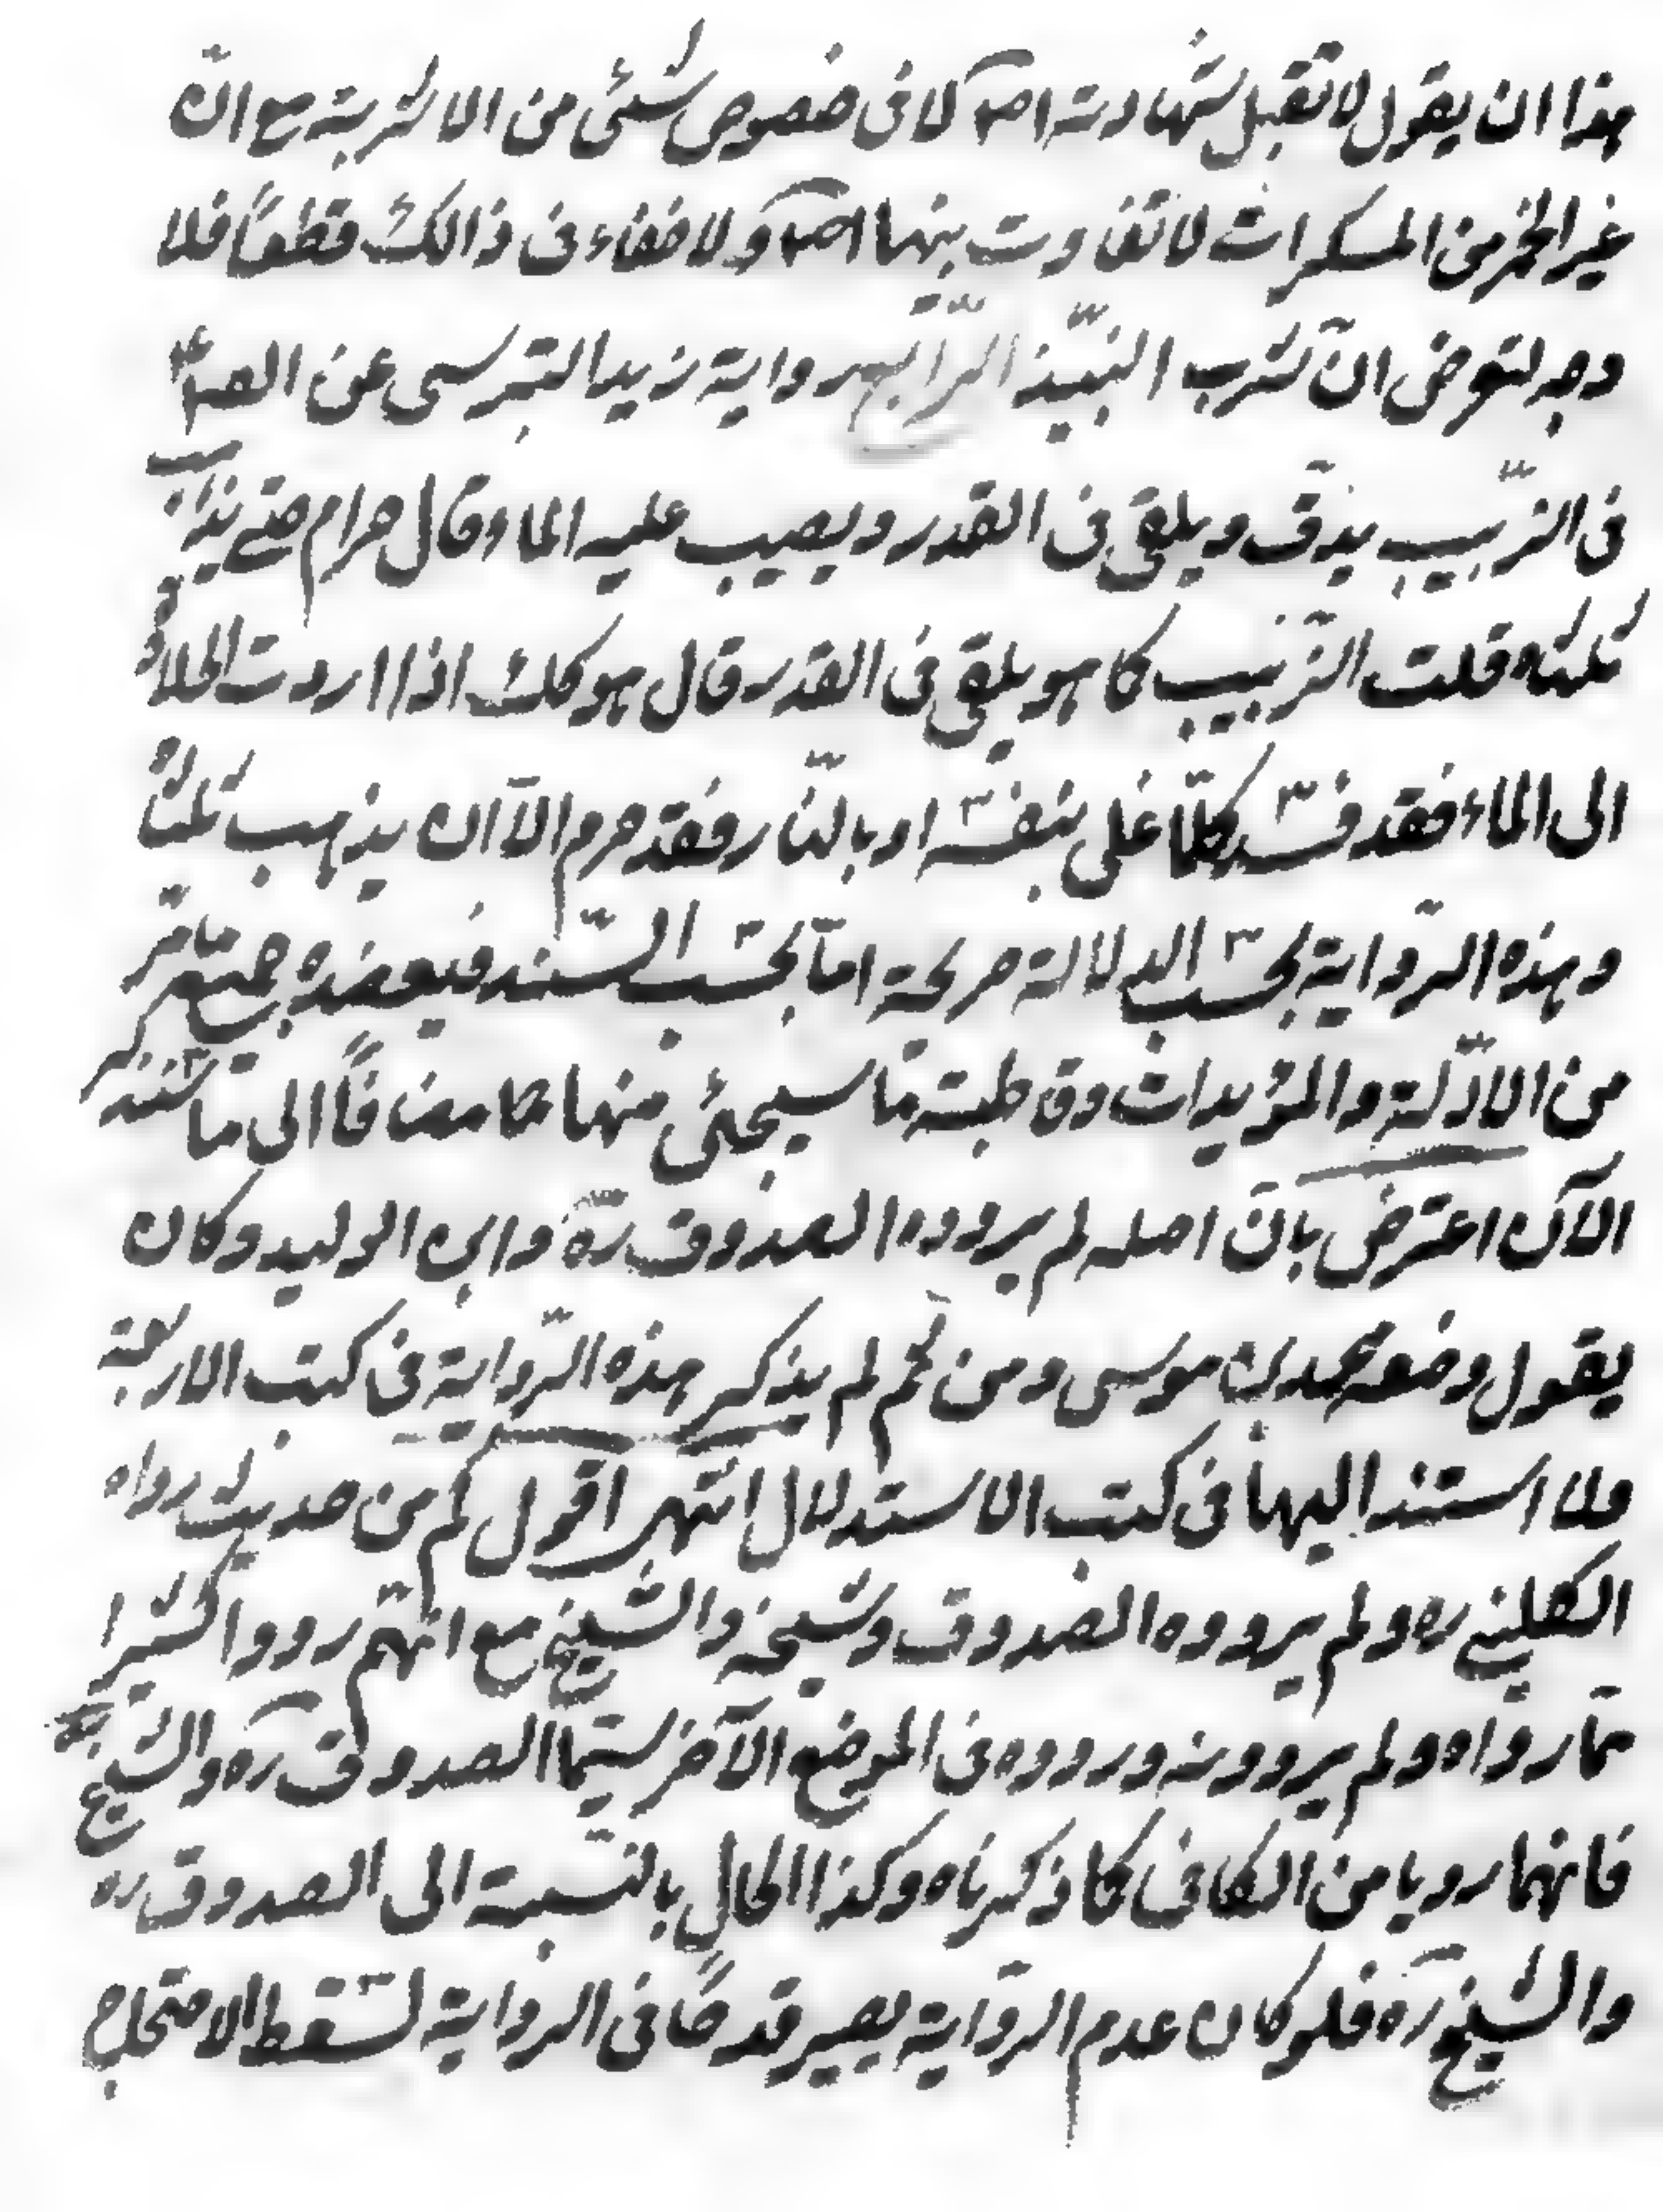 هذا ان يقول لا تقبل شهادته اصلا لا فى خصوص شئى من الاشربة مع انّ
غير الخمر من المسكرات لا تفاوت بينها اصلا ولا خفاء فى ذالك قطعاً فلا
وجه لتعرض انّ شرب النبيّذ الرّابع رواية زيد النّرسى عن الصاع
فى الزّبيب يدقّ ويلقى فى القدر ويصيب عليه الماء وقال حرام حتى يذهب
ثلثاه قلت الزّبيب كما هو يلقى فى القدر قال هو كك اذا اردت الحلاوة
الى الماء فقد فسد كلّما غلى بنفسه او بالنّار فقد حرم الّا ان يذهب ثلثاه
وهذه الرّواية بحسب الدلالة صريحة امّا بحسب السّند فيعضده جميع ما مرّ
من الادّلة والمؤيدات وقاطبة ما سيجئى منها كما مضافاً الى ما سنذكر
الآن اعترض بانّ اصله لم يرووه الصدوق رّه وابن الوليد وكان
يقول وضعه محمد بن موسى ومن ثم لم يذكر هذه الرّواية فى كتب الاربعة
ولا استند اليها فى كتب الاستدلال انتهى اقول كم من حديث رواه
الكلينى ره ولم يرووه الصدوق وشيخه والشيخ مع انّهم رووا كثيرا
ممّا رواه ولم يروونه ورووه فى الموضع الآخر سيّما الصدوق ره والشيخ ره
فانهما رويا من الكافى كما ذكرناه وكذا الحال بالنّسبة الى الصدوق ره
والشيخ ره فلو كان عدم الرّواية يصير قدحاً فى الرواية لسقط الاحتجاج